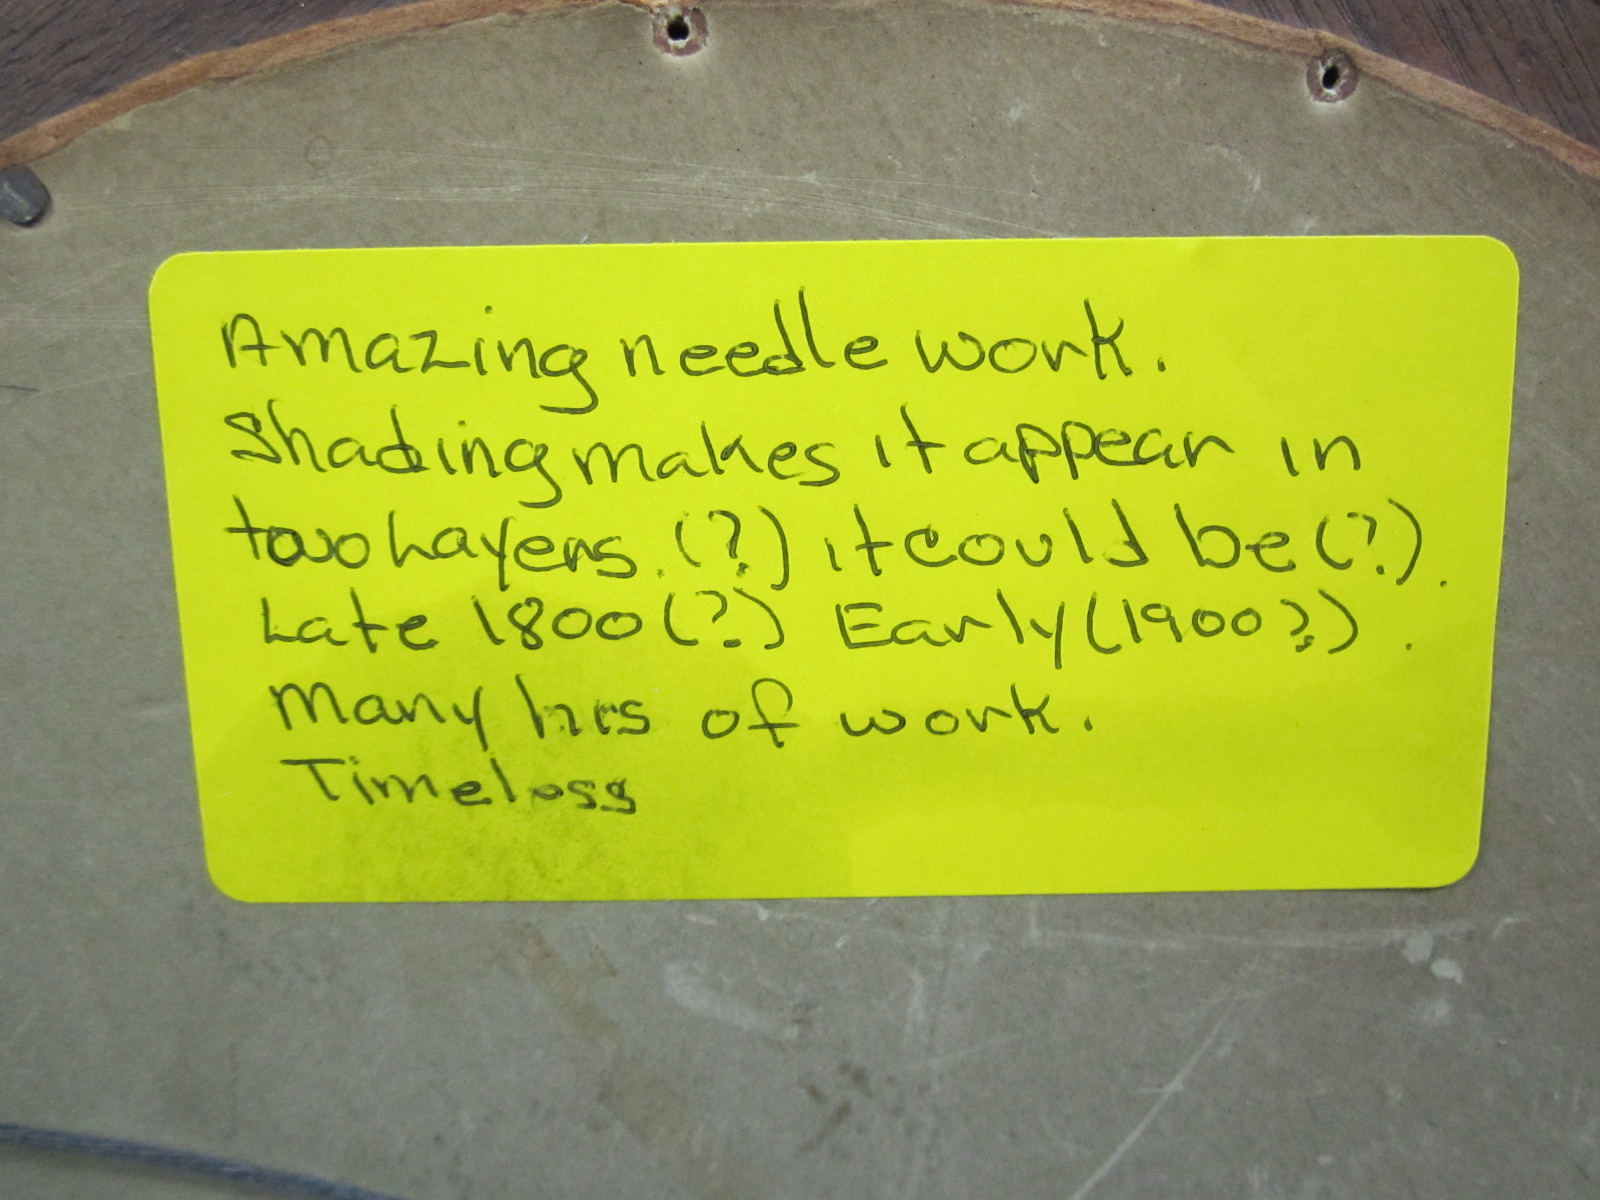 Amazing needle work.
Shading makes it appear in
two Layers. (?) it could be (?).
Late 1800 (?) Early (1900?).
Many hrs of work.
Timeless